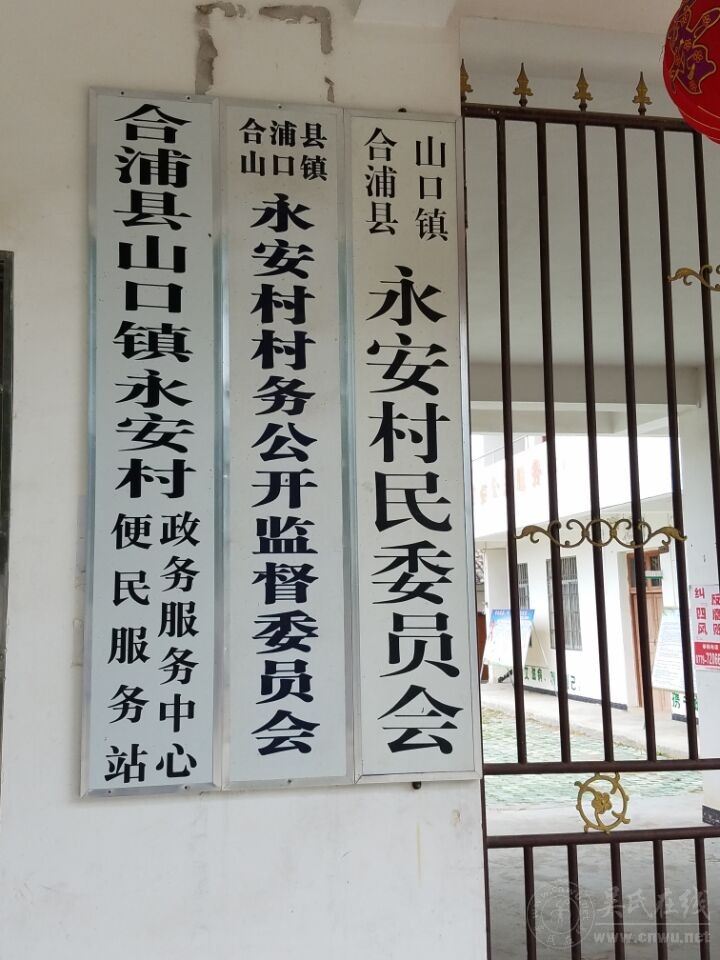 合浦县山口镇永安村
政务服务中心
便民服务站
合浦县
山口镇
永安村村务公开监督委员会
合浦县
山口镇
永安村民委员会
纠
四
风
吴氏在线
www.cnwu.net